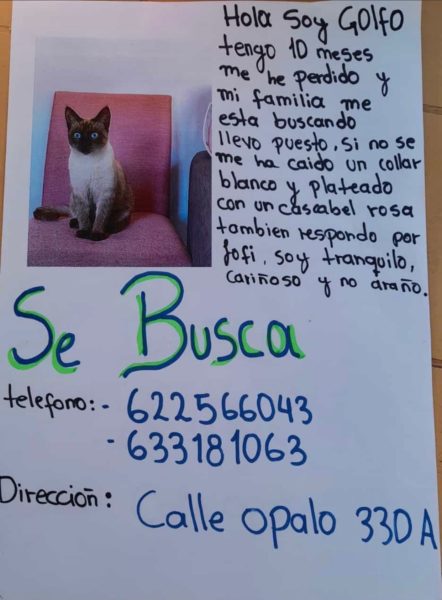 Hola soy GOLFO
tengo 10 meses
me he perdido y
mi familia me
esta buscando
llevo puesto, si no se
me ha caido un collar
blanco y plateado
con un cascabel rosa
tambien respondo por
fofi, soy tranquilo,
cariñoso y no araño.
Se Busca
telefono:- 622566043
- 633181063
Direcciñn: Calle opalo 330 A